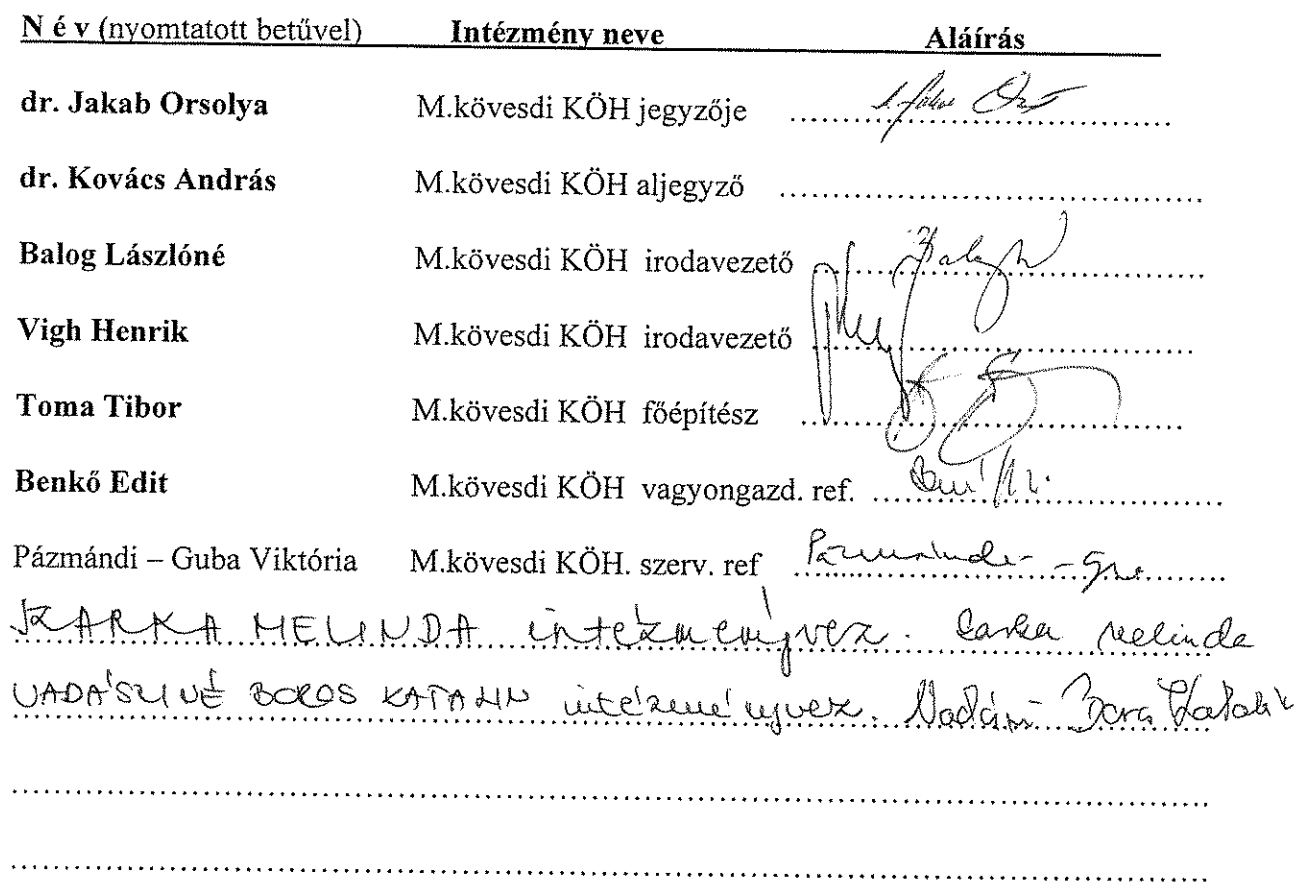 N é v (nyomtatott betűvel) Intézmény neve Aláírás
dr. Jakab Orsolya M.kövesdi KÖH jegyzője
dr. Kovács András M.kövesdi KÖH aljegyző
Balog Lászlóné M.kövesdi KÖH irodavezető
Vigh Henrik M.kövesdi KÖH irodavezető
Toma Tibor M.kövesdi KÖH főépítész
Benkő Edit M.kövesdi KÖH vagyongazd. ref.
Pázmándi – Guba Viktória M.kövesdi KÖH. szerv. ref
SZARKA MELINDA intézményvez. Szarka Melinda
VADÁSZINÉ BOROS KATALIN intézményvez.